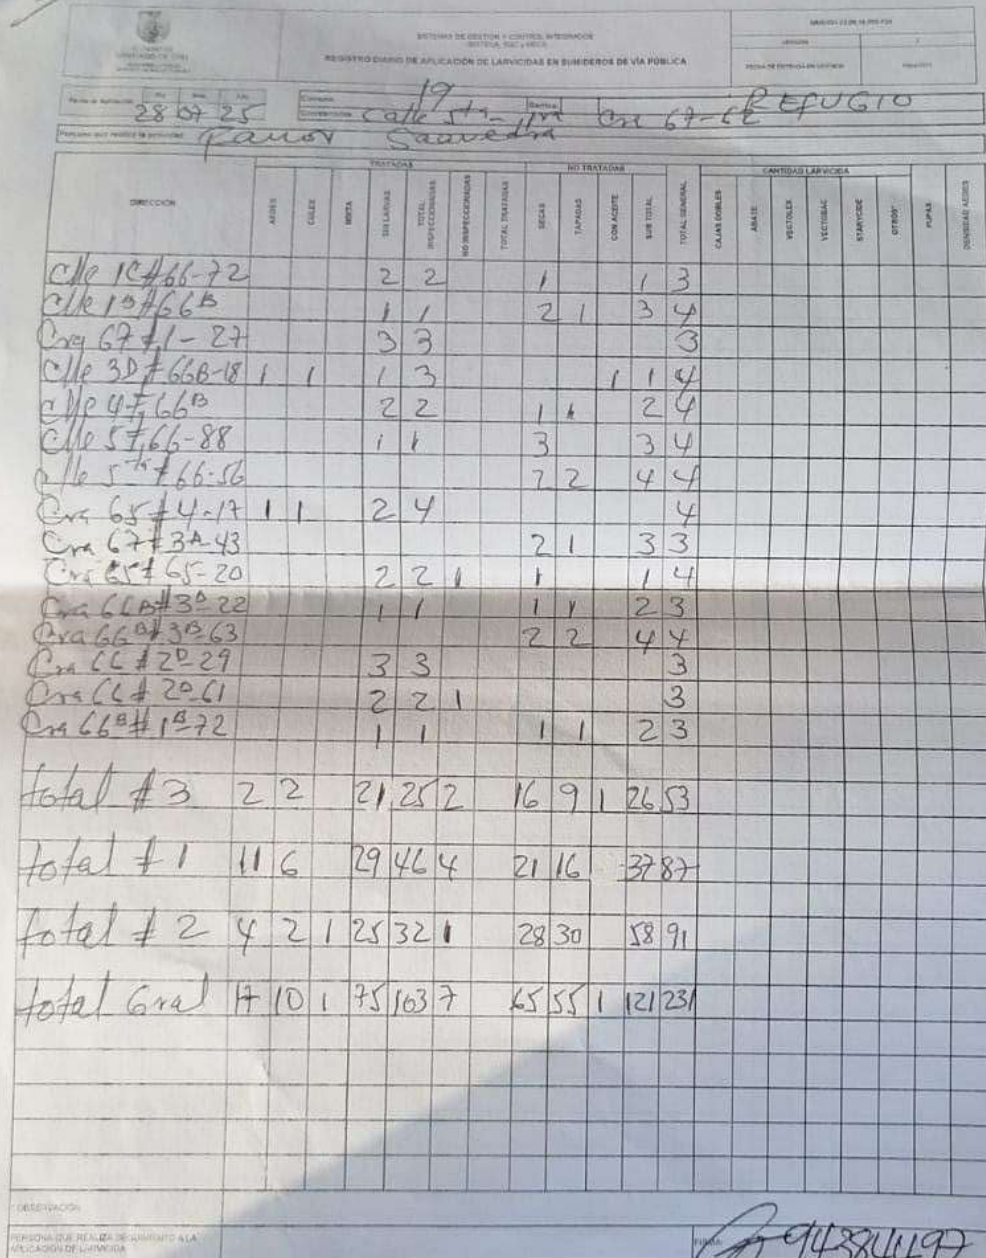 SISTEMAS DE GESTIÓN Y CONTROL INTEGRADOS
REGISTRO DIARIO DE APLICACIÓN DE LARVICIDAS EN SUMIDEROS DE VÍA PÚBLICA
28 07 25
19
REFUGIO
Calle 5ta - 1ra Cra 67-62
Saavedra
DIRECCIÓN TRATADAS NO TRATADAS CANTIDAD LARVICIDA
AEDES CULEX MIXTA SIN LARVAS TOTAL INSPECCIONADAS NO INSPECCIONADAS TOTAL TRATADAS SECAS TAPADAS CON ACEITE SUB TOTAL TOTAL GENERAL CAJAS DOBLES ABATE VECTOLEX VECTOBAC STARYCIDE OTROS PUPAS DENSIDAD AEDES
Clle 1C#66-72 2 2 1 1 3
Clle 1B#66B 1 1 2 1 3 4
Cra 67#1-27 3 3 3
Clle 3D#66B-18 1 1 1 3 1 1 4
Clle 4#66B 2 2 1 1 2 4
Clle 5#66-88 1 1 3 3 4
Clle 5ta#66-56 2 2 4 4
Cra 65#4-17 1 1 2 4 4
Cra 67#3A-43 2 1 3 3
Cra 65#65-20 2 2 1 1 1 4
Cra 66B#3D-22 1 1 1 1 2 3
Cra 66B#3B-63 2 2 4 4
Cra 66#2D-29 3 3 3
Cra 66#2D-61 2 2 1 3
Cra 66B#1B-72 1 1 1 1 2 3
total #3 2 2 21 25 2 16 9 1 26 53
total #1 11 6 29 46 4 21 16 37 87
total #2 4 2 1 25 32 1 28 30 58 91
total Gral 17 10 1 75 103 7 65 55 1 121 231
OBSERVACIÓN
PERSONA QUE REALIZA SEGUIMIENTO A LA
APLICACIÓN DE LARVICIDA
FIRMA